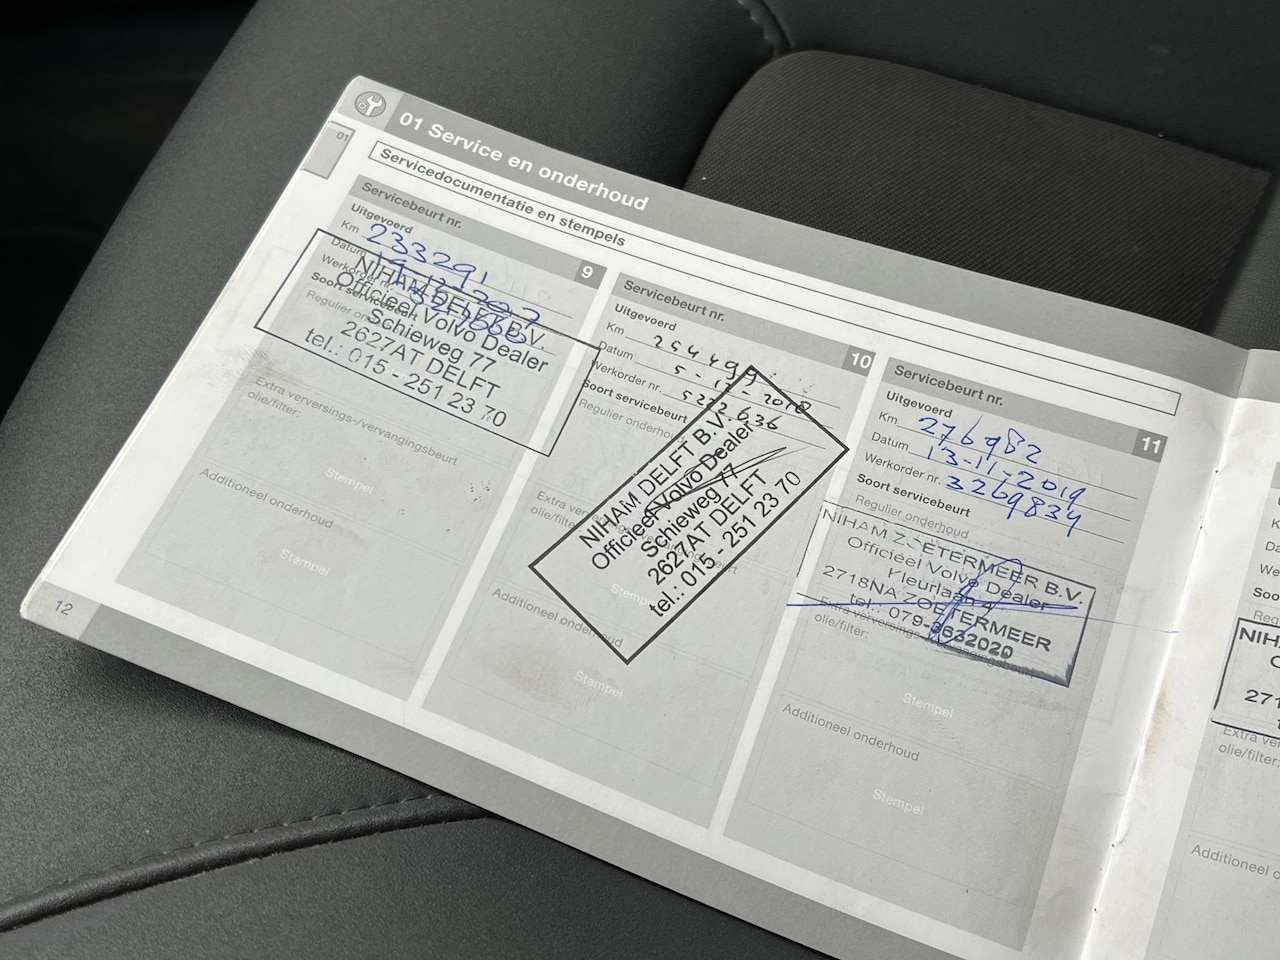 01
01 Service en onderhoud
Servicedocumentatie en stempels
Servicebeurt nr.
9
Uitgevoerd
Km 233291
Datum
Werkorder nr.
Soort servicebeurt
Regulier
NIHAM DELFT B.V.
Officieel Volvo Dealer
Schieweg 77
2627AT DELFT
tel.: 015 - 251 23 70
Extra verversings-/vervangingsbeurt
olie/filter:
Stempel
Additioneel onderhoud
Stempel
12
Servicebeurt nr.
10
Uitgevoerd
Km 254499
Datum 5-12-2018
Werkorder nr. 5222636
Soort servicebeurt
Regulier onderhoud
NIHAM DELFT B.V.
Officieel Volvo Dealer
Schieweg 77
2627AT DELFT
tel.: 015 - 251 23 70
Extra
olie/filter:
Stempel
Additioneel onderhoud
Stempel
Servicebeurt nr.
11
Uitgevoerd
Km 276982
Datum 13-11-2019
Werkorder nr. 3269834
Soort servicebeurt
Regulier onderhoud
NIHAM ZOETERMEER B.V.
Officieel Volvo Dealer
Fleurlaan 4
2718NA ZOETERMEER
tel.: 079-3632020
Extra verversings-/vervangingsbeurt
olie/filter:
Stempel
Additioneel onderhoud
Stempel
Km
Da
We
Soo
Reg
NIH
271
Extra ver
olie/filter:
Additioneel o